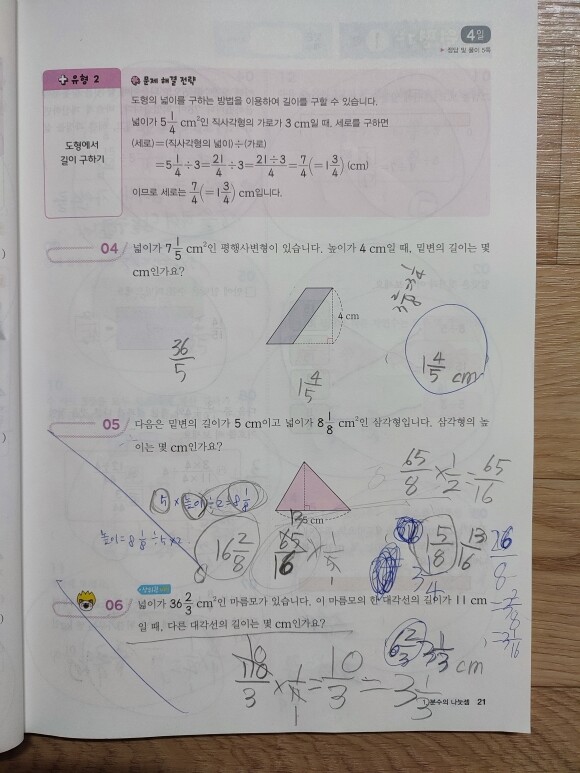 4일
▶ 정답 및 풀이 5쪽
유형 2
도형에서
길이 구하기
문제 해결 전략
도형의 넓이를 구하는 방법을 이용하여 길이를 구할 수 있습니다.
넓이가 5 1/4 cm²인 직사각형의 가로가 3 cm일 때, 세로를 구하면
(세로)=(직사각형의 넓이)÷(가로)
=5 1/4÷3=21/4÷3=21÷3/4=7/4(=1 3/4) (cm)
이므로 세로는 7/4(=1 3/4) cm입니다.
04 넓이가 7 1/5 cm²인 평행사변형이 있습니다. 높이가 4 cm일 때, 밑변의 길이는 몇
cm인가요?
4 cm
36/5
1 4/5
1 4/5 cm
05 다음은 밑변의 길이가 5 cm이고 넓이가 8 1/8 cm²인 삼각형입니다. 삼각형의 높
이는 몇 cm인가요?
65/8 × 1/2 = 65/16
5 × 높이 ÷ 2 = 8 1/8
5 cm
높이 = 8 1/8 ÷ 5 × 2
16 2/8
13
65/16 × 1/5
1 5/8
13/16
26/8
=3 2/8
3 1/4
06 넓이가 36 2/3 cm²인 마름모가 있습니다. 이 마름모의 한 대각선의 길이가 11 cm
일 때, 다른 대각선의 길이는 몇 cm인가요?
6 2/3
3 1/3 cm
10
110/3 × 1/11 = 10/3 = 3 1/3
1
1 분수의 나눗셈 21